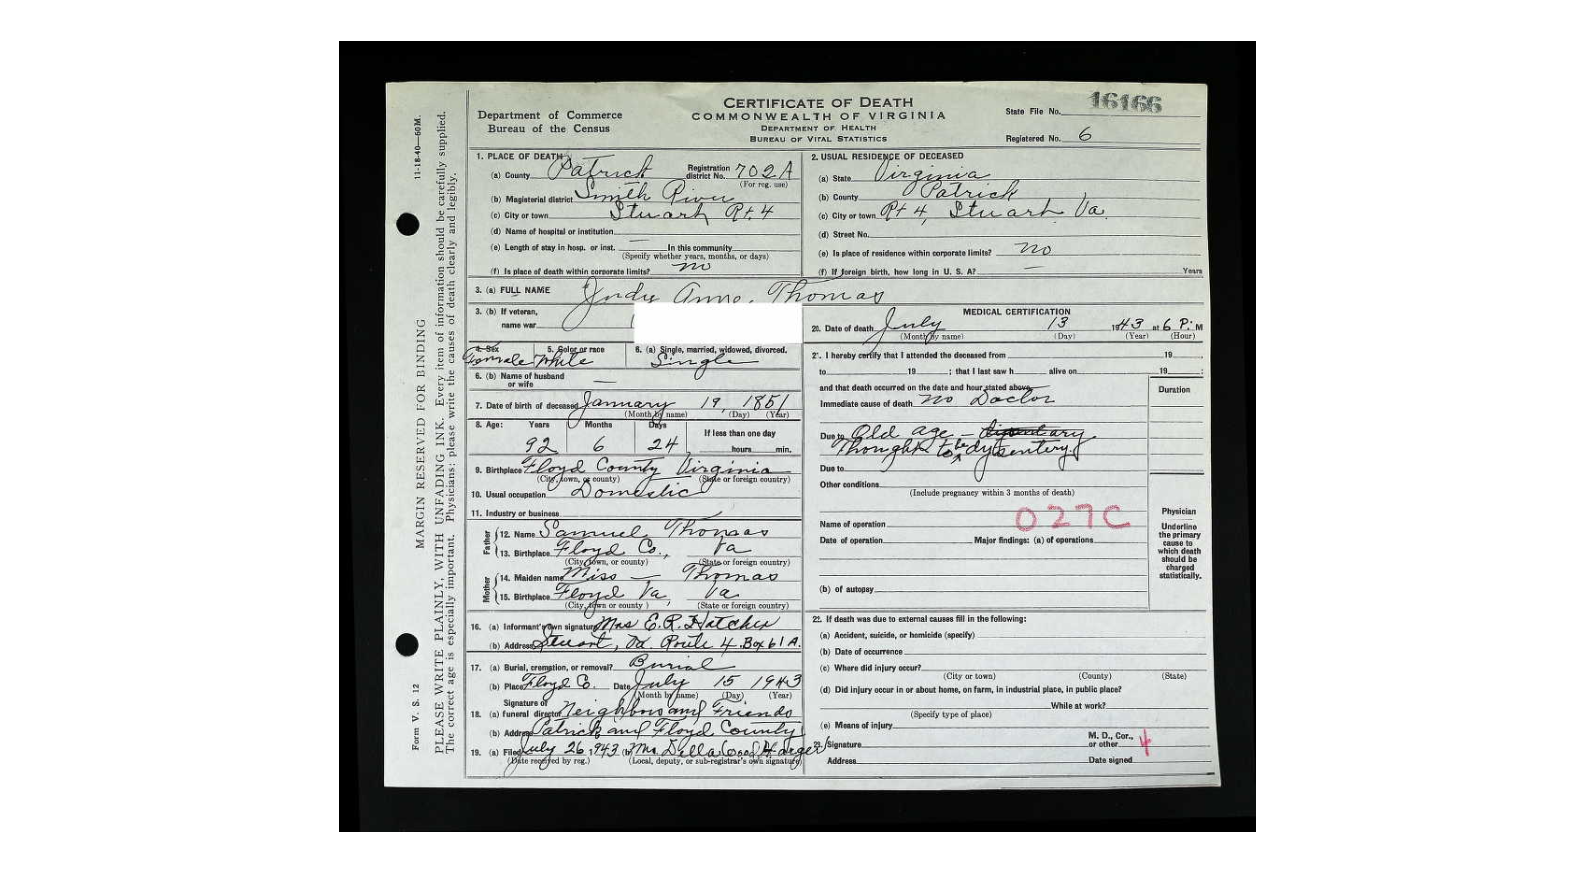 CERTIFICATE OF DEATH
COMMONWEALTH OF VIRGINIA
DEPARTMENT OF HEALTH
BUREAU OF VITAL STATISTICS
Department of Commerce
Bureau of the Census
State File No. 16166
Registered No. 6
11-18-40—60M.
MARGIN RESERVED FOR BINDING
Form V. S. 12
PLEASE WRITE PLAINLY, WITH UNFADING INK. Every item of information should be carefully supplied.
The correct age is especially important. Physicians: please write the causes of death clearly and legibly.
1. PLACE OF DEATH
(a) County Patrick Registration district No. 702A
(For reg. use)
(b) Magisterial district Smith River
(c) City or town Stuart Rt. 4
(d) Name of hospital or institution
(e) Length of stay in hosp. or inst. — In this community
(Specify whether years, months, or days)
(f) Is place of death within corporate limits? no
2. USUAL RESIDENCE OF DECEASED
(a) State Virginia
(b) County Patrick
(c) City or town Rt 4, Stuart Va.
(d) Street No.
(e) Is place of residence within corporate limits? no
(f) If foreign birth, how long in U. S. A? — Years
3. (a) FULL NAME Judy Anne Thomas
3. (b) If veteran,
name war
4. Sex 5. Color or race 6. (a) Single, married, widowed, divorced.
Female White Single
6. (b) Name of husband
or wife —
7. Date of birth of deceased January 19, 1851
(Month by name) (Day) (Year)
8. Age: Years Months Days If less than one day
92 6 24 hours min.
9. Birthplace Floyd County Virginia
(City, town, or county) (State or foreign country)
10. Usual occupation Domestic
11. Industry or business
Father
12. Name Samuel Thomas
13. Birthplace Floyd Co., Va
(City, town, or county) (State or foreign country)
Mother
14. Maiden name Miss — Thomas
15. Birthplace Floyd Va, Va
(City, town or county) (State or foreign country)
16. (a) Informant's own signature Mrs E. R. Hatcher
(b) Address Stuart, Va. Route 4 Box 61A.
17. (a) Burial, cremation, or removal? Burial
(b) Place Floyd Co. Date July 15 1943
(Month by name) (Day) (Year)
Signature of
18. (a) funeral director Neighbors and Friends
(b) Address Patrick and Floyd County
19. (a) Filed July 26 1943 (b) Mrs Della
(Date received by reg.) (Local, deputy, or sub-registrar's own signature)
MEDICAL CERTIFICATION
20. Date of death July 13 1943 at 6 P. M
(Month by name) (Day) (Year) (Hour)
21. I hereby certify that I attended the deceased from 19
to 19 ; that I last saw h alive on 19 ;
and that death occurred on the date and hour stated above.
Duration
Immediate cause of death no Doctor
Due to Old age —
Thought to be dysentery
Due to
Other conditions
(Include pregnancy within 3 months of death)
027C
Name of operation
Date of operation Major findings: (a) of operations
(b) of autopsy
Physician
Underline
the primary
cause to
which death
should be
charged
statistically.
22. If death was due to external causes fill in the following:
(a) Accident, suicide, or homicide (specify)
(b) Date of occurrence
(c) Where did injury occur?
(City or town) (County) (State)
(d) Did injury occur in or about home, on farm, in industrial place, in public place?
While at work?
(Specify type of place)
(e) Means of injury
M. D., Cor.,
Signature or other 4
Address Date signed